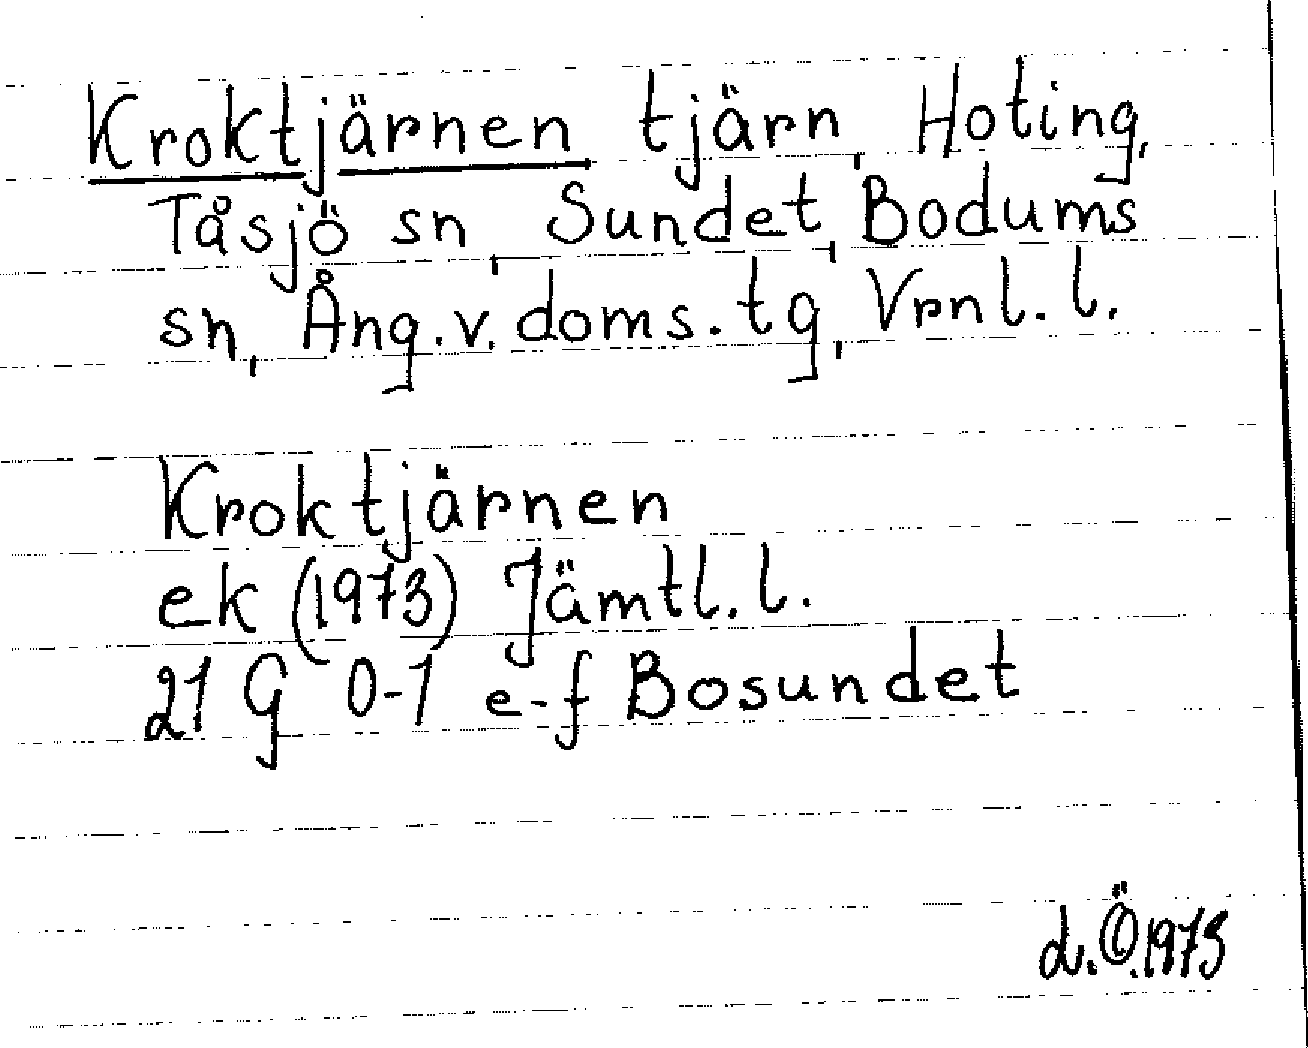 Kroktjärnen tjärn, Hoting,
Tåsjö sn, Sundet, Bodums
sn, Ång.v. doms.tg, Vrnl.l.
Kroktjärnen
ek (1973) Jämtl.l.
21 G 0-1 e-f Bosundet
L.Ö.1973